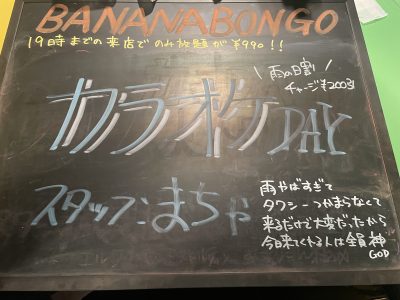 BANANABONGO
19時までの来店でのみ放題が¥990!!
\雨の日割/
チャージ¥200引
カラオケDAY
スタッフ:まちゃ
雨やばすぎて
タクシーつかまらなくて
来るだけで大変だったから
今日来てくれる人は全員神
GOD